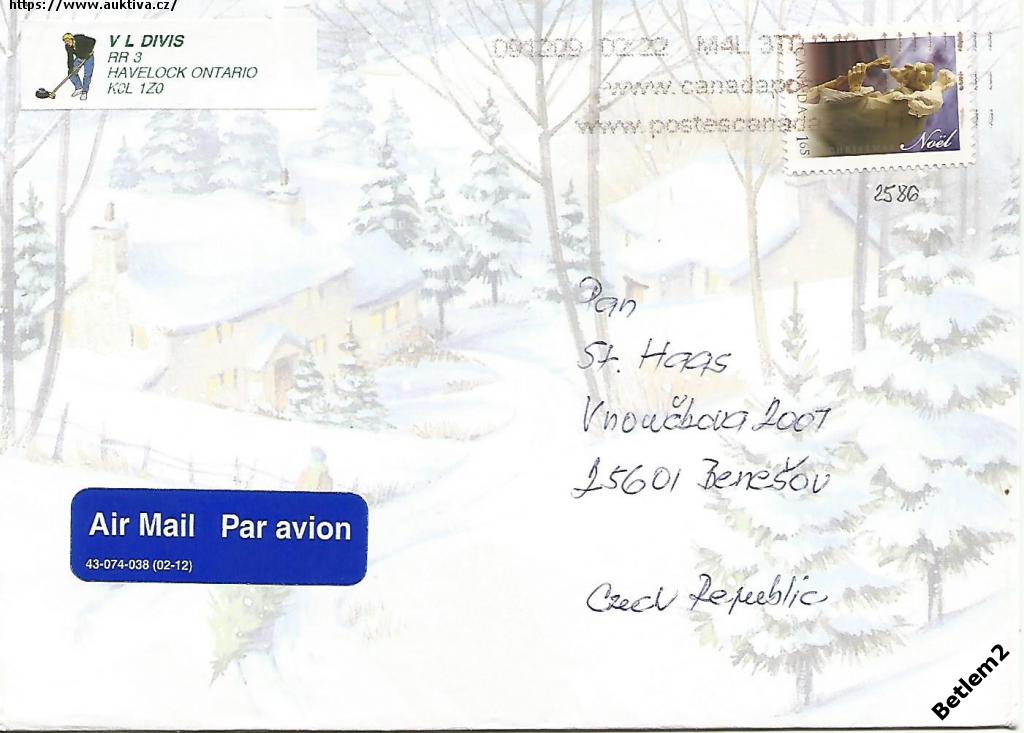 https://www.auktiva.cz/
V L DIVIS
RR 3
HAVELOCK ONTARIO
K0L 1Z0
091209 02:22 M4L 3T0
www.canadapo
www.postescanada
CANADA
165
CHRISTMAS
Noël
2586
Pan
St. Haas
Vnoučkova 2007
25601 Benešov
Czech Republic
Air Mail Par avion
43-074-038 (02-12)
Betlem2